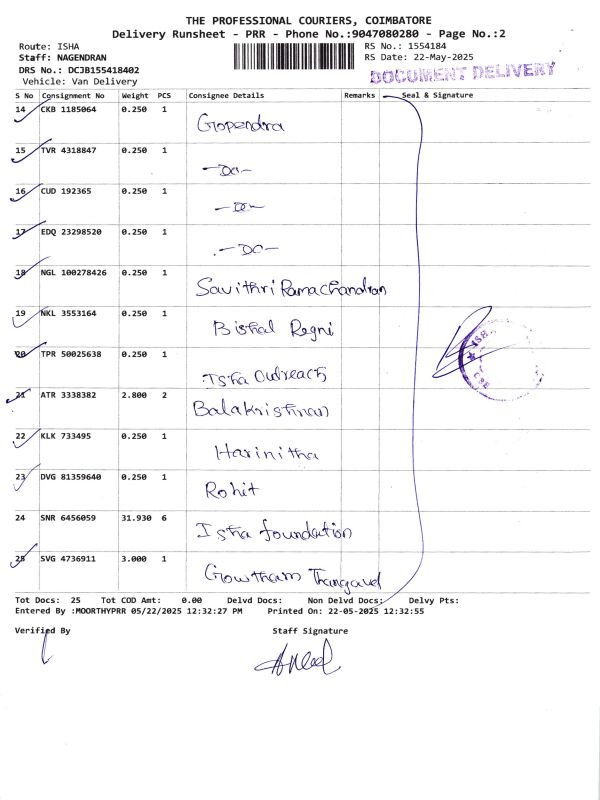 THE PROFESSIONAL COURIERS, COIMBATORE
Delivery Runsheet - PRR - Phone No.:9047080280 - Page No.:2
Route: ISHA RS No.: 1554184
Staff: NAGENDRAN RS Date: 22-May-2025
DRS No.: DCJB155418402 DOCUMENT DELIVERY
Vehicle: Van Delivery
S No Consignment No Weight PCS Consignee Details Remarks Seal & Signature
14 CKB 1185064 0.250 1
Gopendra
15 TVR 4318847 0.250 1
-Do-
16 CUD 192365 0.250 1
-Do-
17 EDQ 23298520 0.250 1
-DO-
18 NGL 100278426 0.250 1
Savithri Ramachandran
19 NKL 3553164 0.250 1
Bishal Regni
20 TPR 50025638 0.250 1
Isha Outreach
21 ATR 3338382 2.800 2
Balakrishnan
22 KLK 733495 0.250 1
Harinitha
23 DVG 81359640 0.250 1
Rohit
24 SNR 6456059 31.930 6
Isha foundation
25 SVG 4736911 3.000 1
Gowtham Thangavel
Tot Docs: 25 Tot COD Amt: 0.00 Delvd Docs: Non Delvd Docs: Delvy Pts:
Entered By :MOORTHYPRR 05/22/2025 12:32:27 PM Printed On: 22-05-2025 12:32:55
Verified By Staff Signature